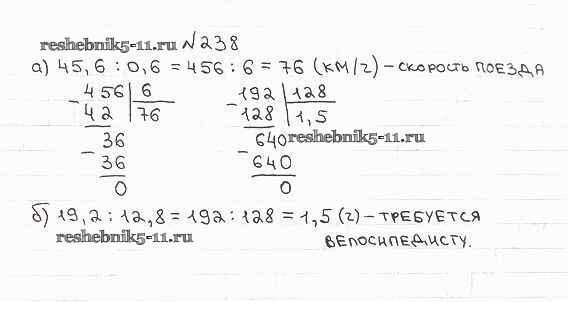 reshebnik5-11.ru №238
а) 45,6 : 0,6 = 456 : 6 = 76 (км/ч) – скорость поезда
456 | 6
– 42 | 76
36
– 36
0
192 | 128
– 128 | 1,5
640 reshebnik5-11.ru
– 640
0
б) 19,2 : 12,8 = 192 : 128 = 1,5 (ч) – требуется
reshebnik5-11.ru
велосипедисту.